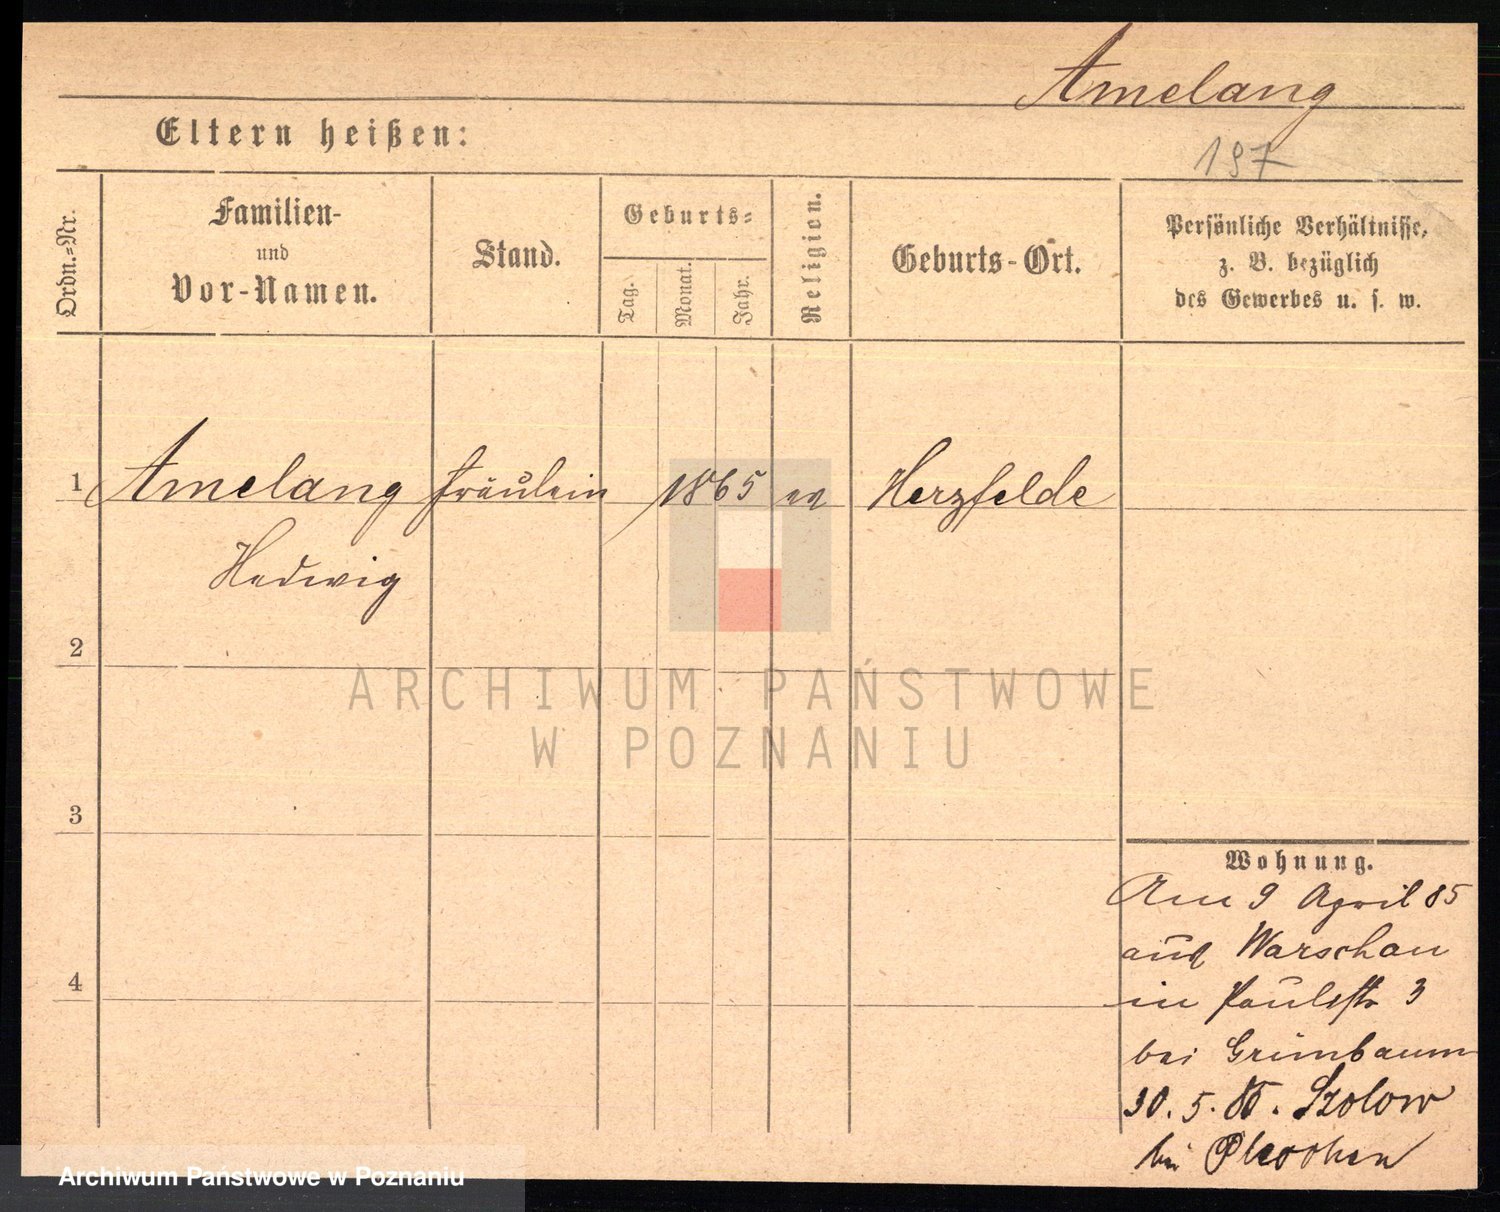 Amelang
Eltern heißen:
197
Ordn.-Nr.
Familien-
und
Vor-Namen.
Stand.
Geburts-
Tag.
Monat.
Jahr.
Religion.
Geburts-Ort.
Persönliche Verhältnisse,
z. B. bezüglich
des Gewerbes u. s. w.
1 Amelang Fräulein 1865 ev Herzfelde
Hedwig
2
3
4
Wohnung.
Am 9 April 85
aus Warschau
in Paulistr 3
bei Grünbaum
30. 5. 85. Szolow
bei Pleschen
ARCHIWUM PAŃSTWOWE
W POZNANIU
Archiwum Państwowe w Poznaniu